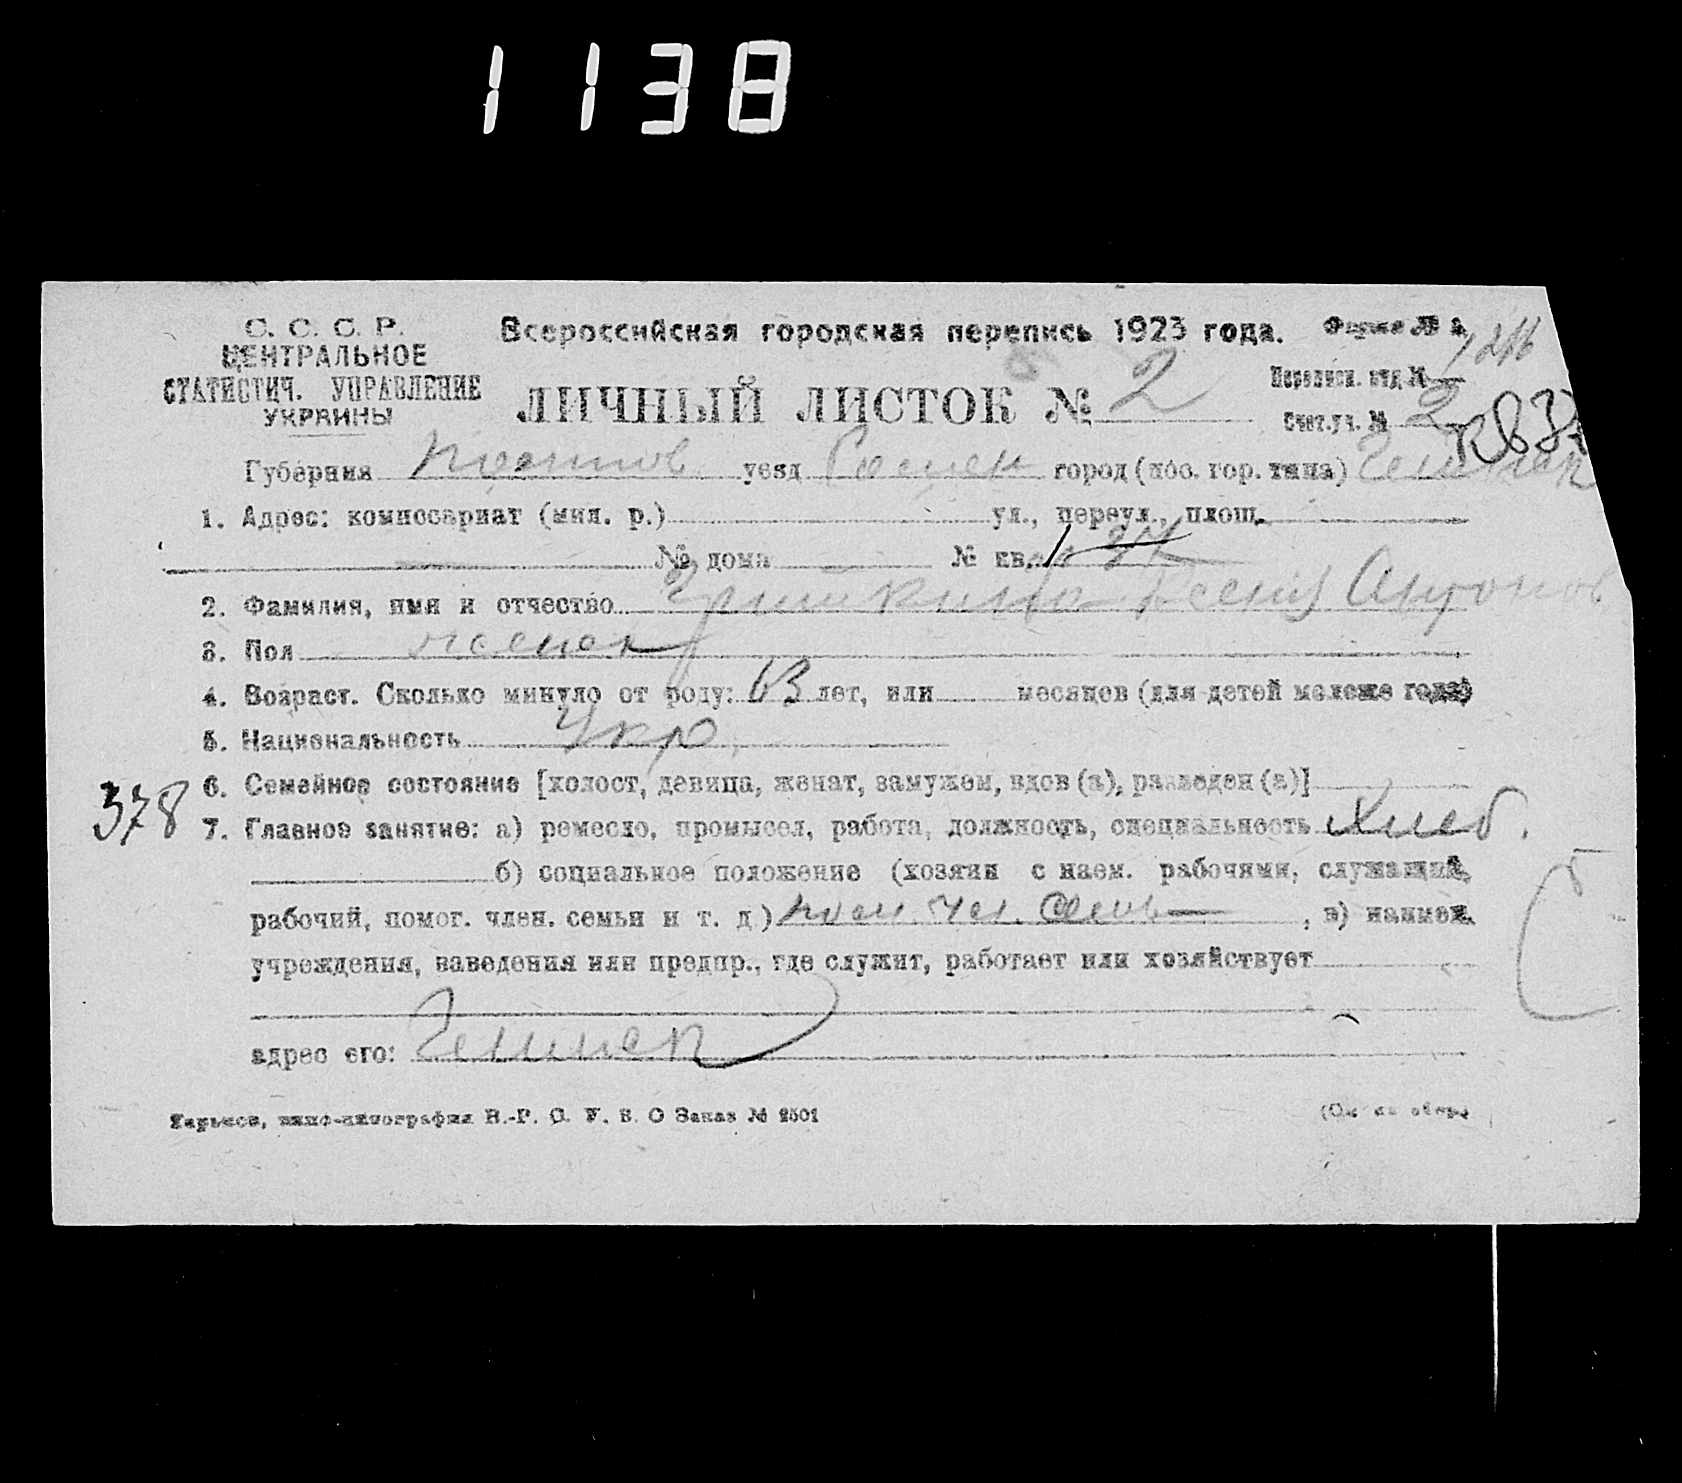 1138
С. С. С. Р.
ЦЕНТРАЛЬНОЕ
СТАТИСТИЧ. УПРАВЛЕНИЕ
УКРАИНЫ
Всероссийская городская перепись 1923 года.
Форма № 2
ЛИЧНЫЙ ЛИСТОК № 2
Переписн. отд. №
Счет. уч. № 2
Губерния уезд Ромен город (пос. гор. типа)
1. Адрес: комиссариат (мил. р.) ул., переул., площ.
№ дома № кв.
2. Фамилия, имя и отчество Антонов
3. Пол женск
4. Возраст. Сколько минуло от роду: 63 лет, или месяцев (для детей моложе года)
5. Национальность Укр.
6. Семейное состояние [холост, девица, женат, замужем, вдов (а), разведен (а)]
378
7. Главное занятие: а) ремесло, промысел, работа, должность, специальность Хлеб.
б) социальное положение (хозяин с наем. рабочими, служащий,
рабочий, помог. член. семьи и т. д.) пом. чл. семь , в) наимен.
учреждения, заведения или предпр., где служит, работает или хозяйствует
адрес его:
Заказ № 2501